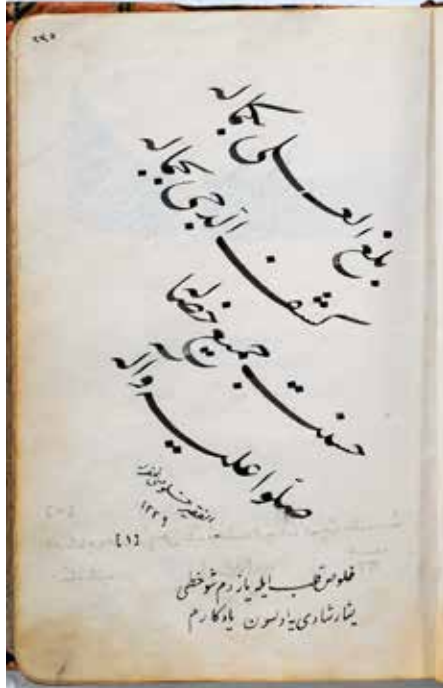 ٢٢٥
بلغ العلى بكماله
كشف الدجى بجماله
حسنت جميع خصاله
صلوا عليه وآله
الفقير خلوصى
١٣٣٩
[١]
خلوص قلب ايله يازدم شو خطى
يشار شادى يه اولسون يادكارم